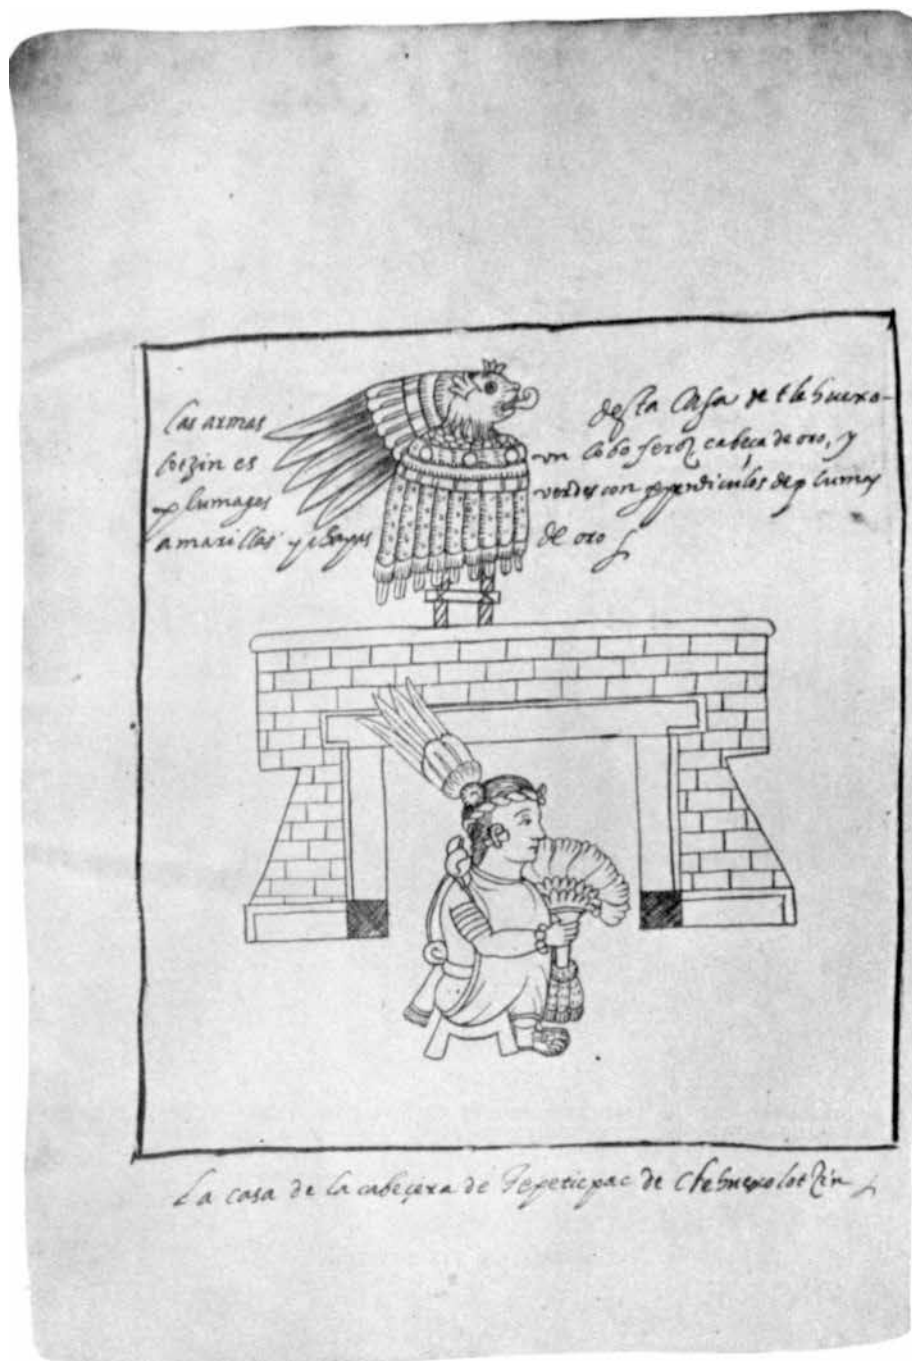 las armas desta Casa de tlehuexo-
lotzin es un lobo feroz cabeça de oro, y
plumages verdes con perpendiculos de plumas
amarillas y chapas de oro
La casa de la cabeçera de Tepeticpac de tlehuexolotzin